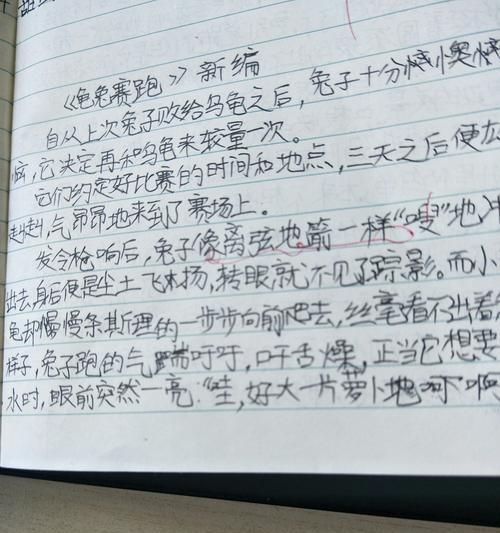 《龟兔赛跑》新编
自从上次兔子败给乌龟之后，兔子十分懊
它决定再和乌龟来较量一次。
它们约定好比赛的时间和地点，三天之后便
赳赳，气昂昂地来到了赛场上。
发令枪响后，兔子像离弦地箭一样“嗖”地冲
出去，身后便是尘土飞扬，转眼就不见了踪影。而小
龟却慢慢条斯理的一步步向前爬去，丝毫看不出着
样子，兔子跑的气喘吁吁，口干舌燥，正当它想要
水时，眼前突然一亮：“哇，好大一片萝卜地啊